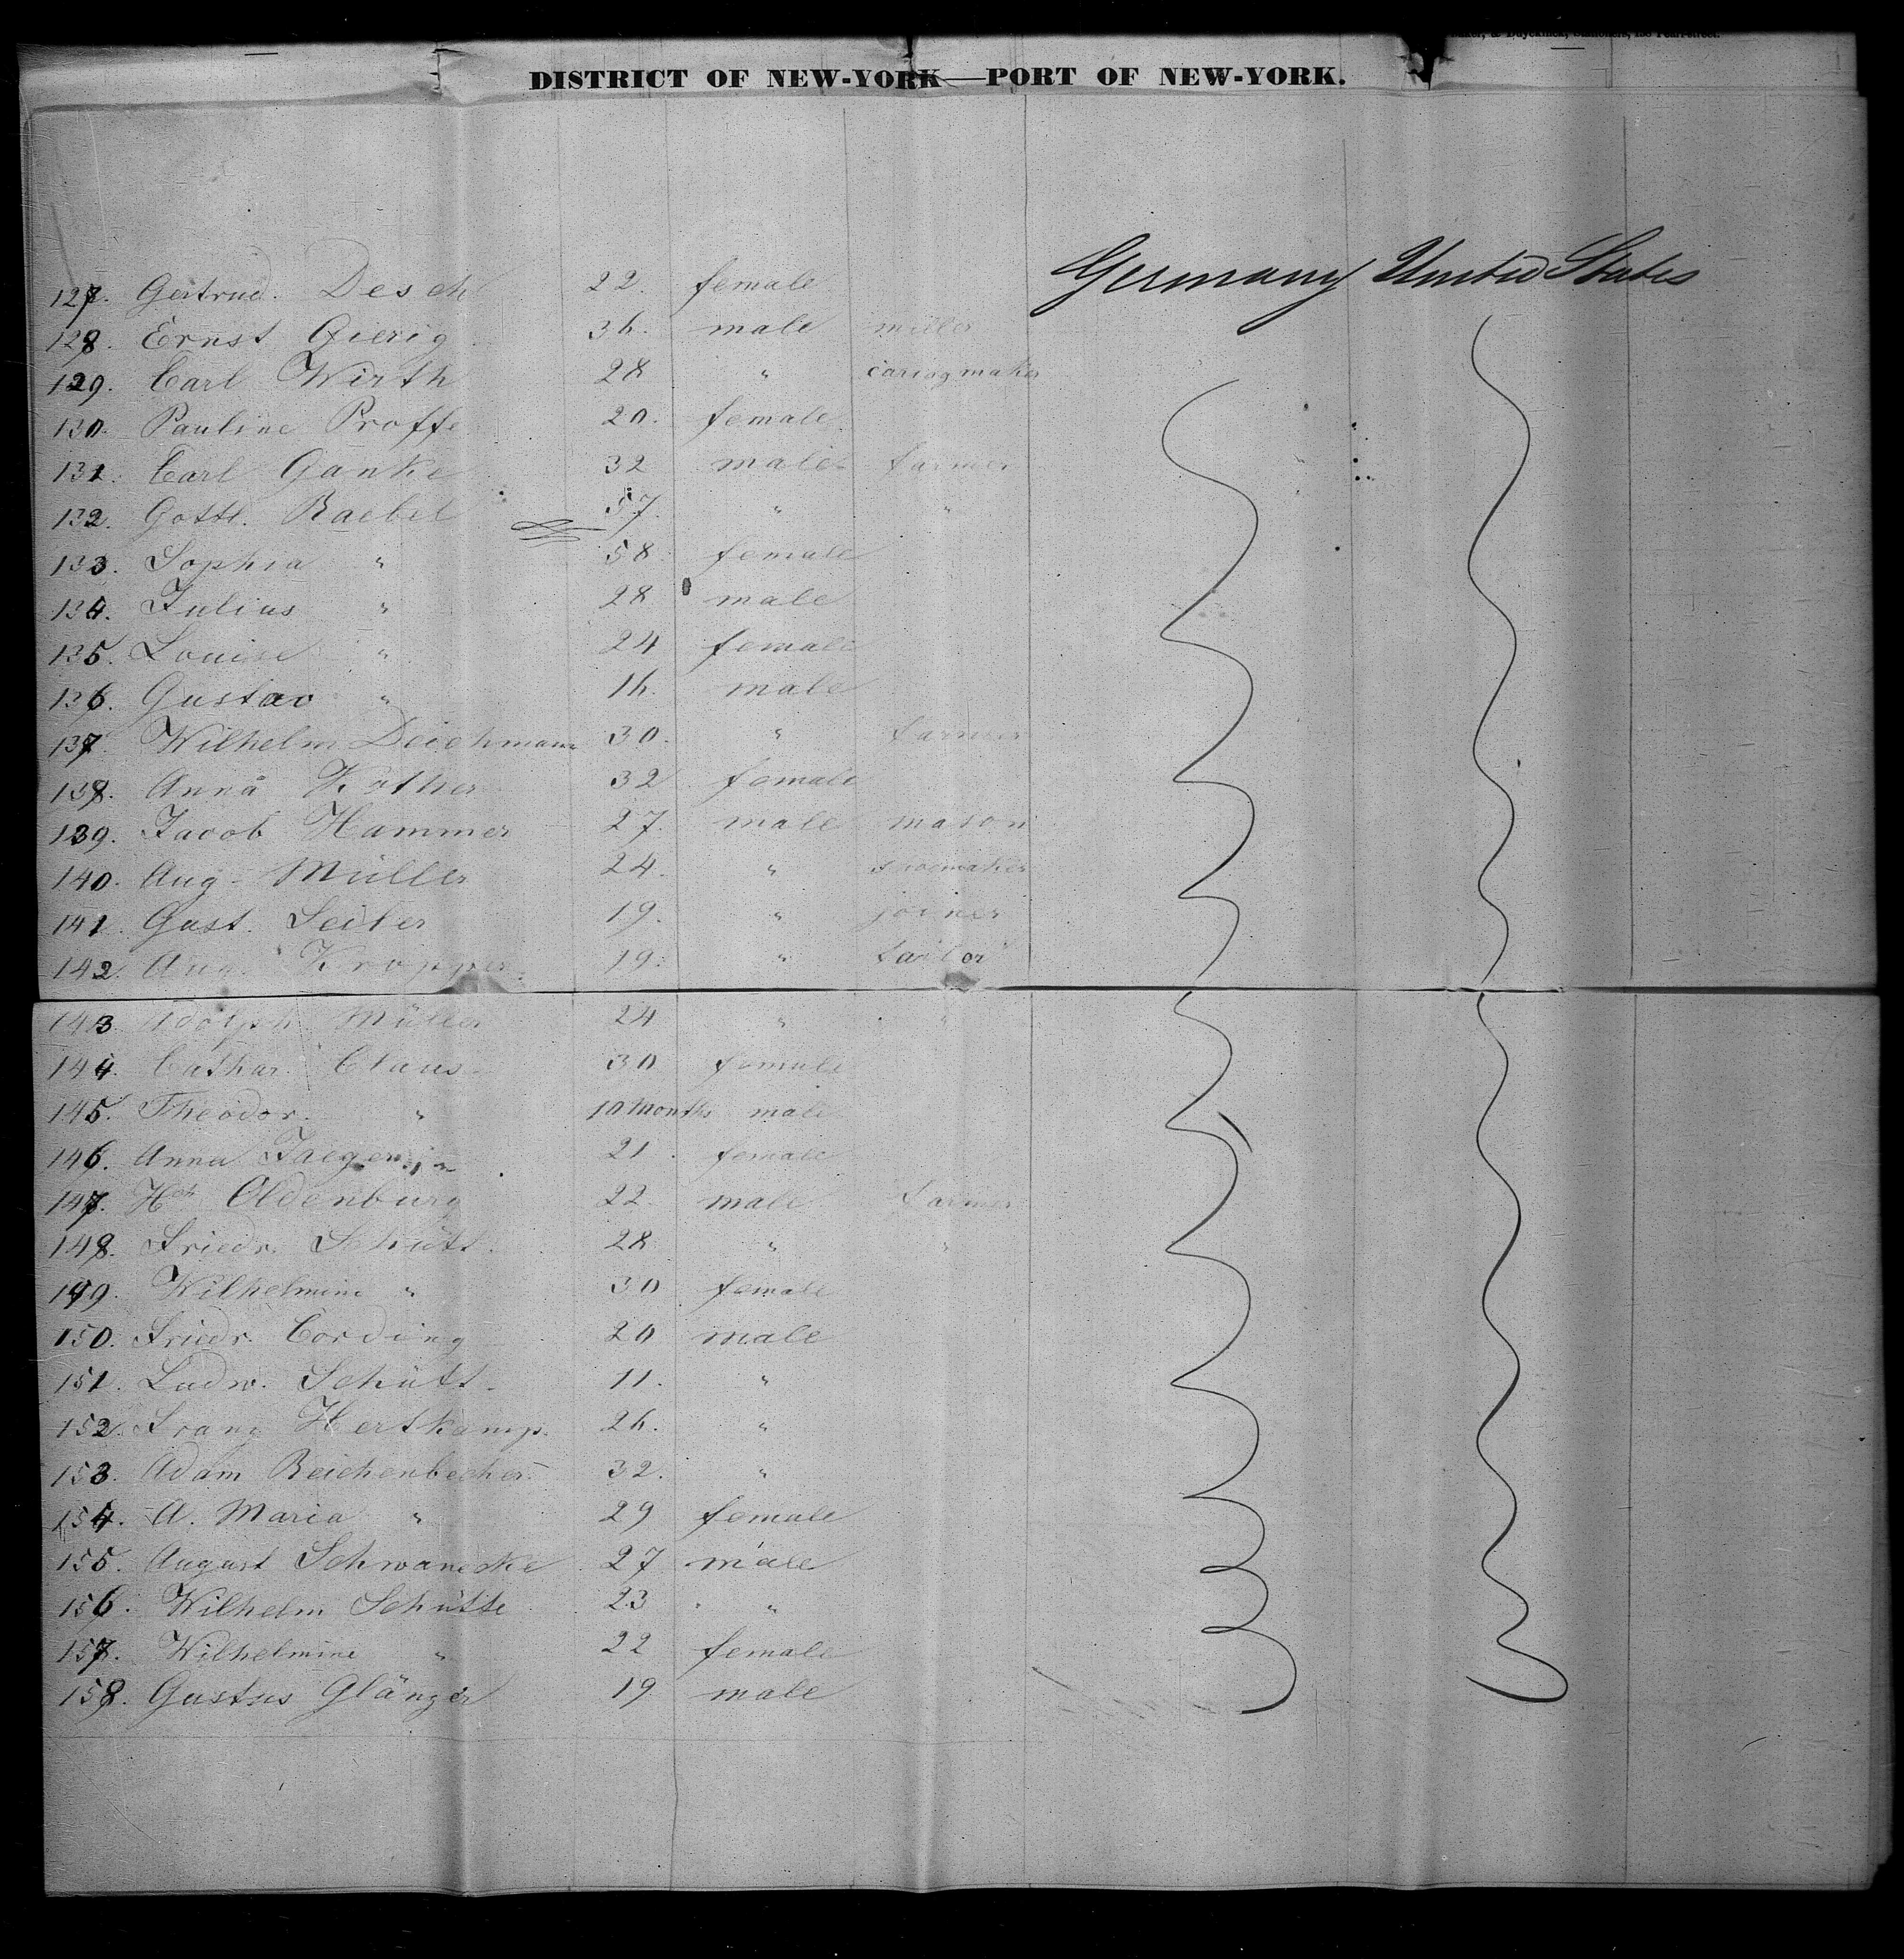 Duyckinck, Stationers, 158 Pearl-street.
DISTRICT OF NEW-YORK—PORT OF NEW-YORK.
Germany United States
127. Gertrud. Desch 22. female
128. Ernst Gierig 36. male miller
129. Carl Wirth 28 " cariagmaker
130. Pauline Proffe 20. female
131. Carl Ganke 32 male farmer
132. Gottl. Raebel 57. " "
133. Sophia " 58 female
134. Julius " 28 male
135. Louise " 24 female
136. Gustav " 16. male
137. Wilhelm Deichmann 30. " farmer
138. Anna Kother 32 female
139. Jacob Hammer 27. male mason
140. Aug. Müller 24. " shoemaker
141. Gust. Seiler 19. " joiner
142. Aug. Kropper. 19. " tailor
143. Adolph Müller 24 " "
144. Cathar. Claus. 30 female
145. Theodor. " 10 Months male
146. Anna Jaeger 21. female
147. Hch Oldenburg 22. male farmer
148. Friedr. Schütt. 28 " "
149. Wilhelmine " 30 female
150. Friedr. Cording 20 male
151. Ludw. Schütt. 11. "
152. Franz Hertkamp. 26. "
153. Adam Reichenbecher 32. "
154. A. Maria " 29 female
155. August Schwanecke 27 male
156. Wilhelm Schütte 23 "
157. Wilhelmine " 22 female
158. Gustus Glänzer 19 male